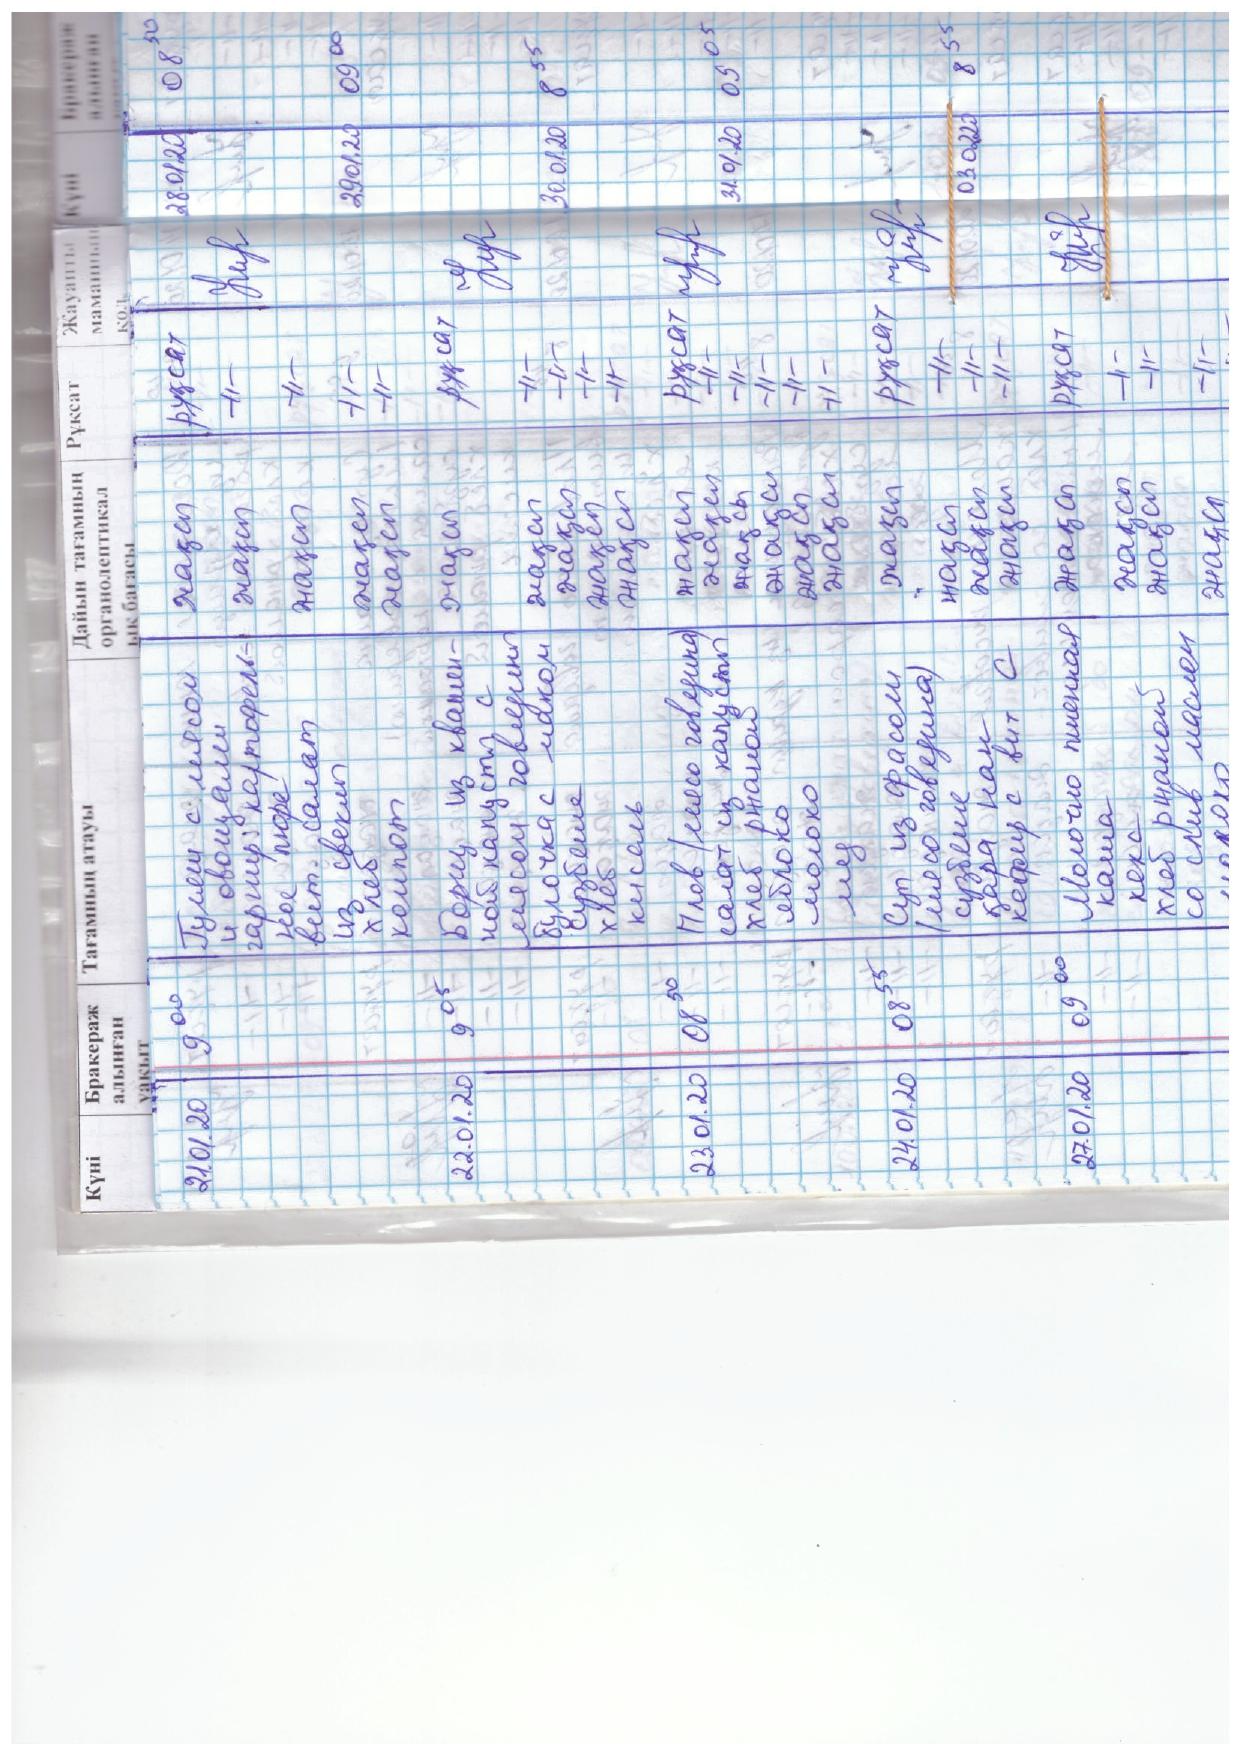 Күні Бракераж алынған уақыт Тағамның атауы Дайын тағамның органолептикал ық бағасы Рұқсат Жауапты маманның қол
21.01.20 9 00 Гуляш с мясом жақсы рұқсат
и овощами
гарнир: картофель- жақсы -//-
ное пюре
вит. салат жақсы -//-
из свеклы
хлеб жақсы -//-
компот жақсы -//-
22.01.20 9 05 Борщ из квашен- жақсы рұқсат
ной капусты с
мясом говядины
булочка с маком жақсы -//-
сузбеше жақсы -//-
хлеб жақсы -//-
кисель жақсы -//-
23.01.20 08 50 Плов (мясо говядина) жақсы рұқсат
салат из капусты жақсы -//-
хлеб ржаной жақсы -//-
яблоко жақсы -//-
молоко жақсы -//-
мед жақсы -//-
24.01.20 08 55 Суп из фасоли жақсы рұқсат
(мясо говядина)
сузбеше жақсы -//-
қара нан жақсы -//-
кефир с вит С жақсы -//-
27.01.20 09 00 Молочно пшенная жақсы рұқсат
каша
кекс жақсы -//-
хлеб ржаной жақсы -//-
со слив маслом
молоко жақсы -//-
Күні Бракераж алынған
28.01.20 08 50
29.01.20 09 00
30.01.20 8 55
31.01.20 09 05
03.02.20 8 55